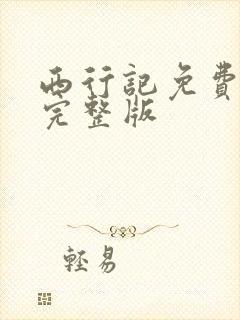 西行記免費
完整版
輕易